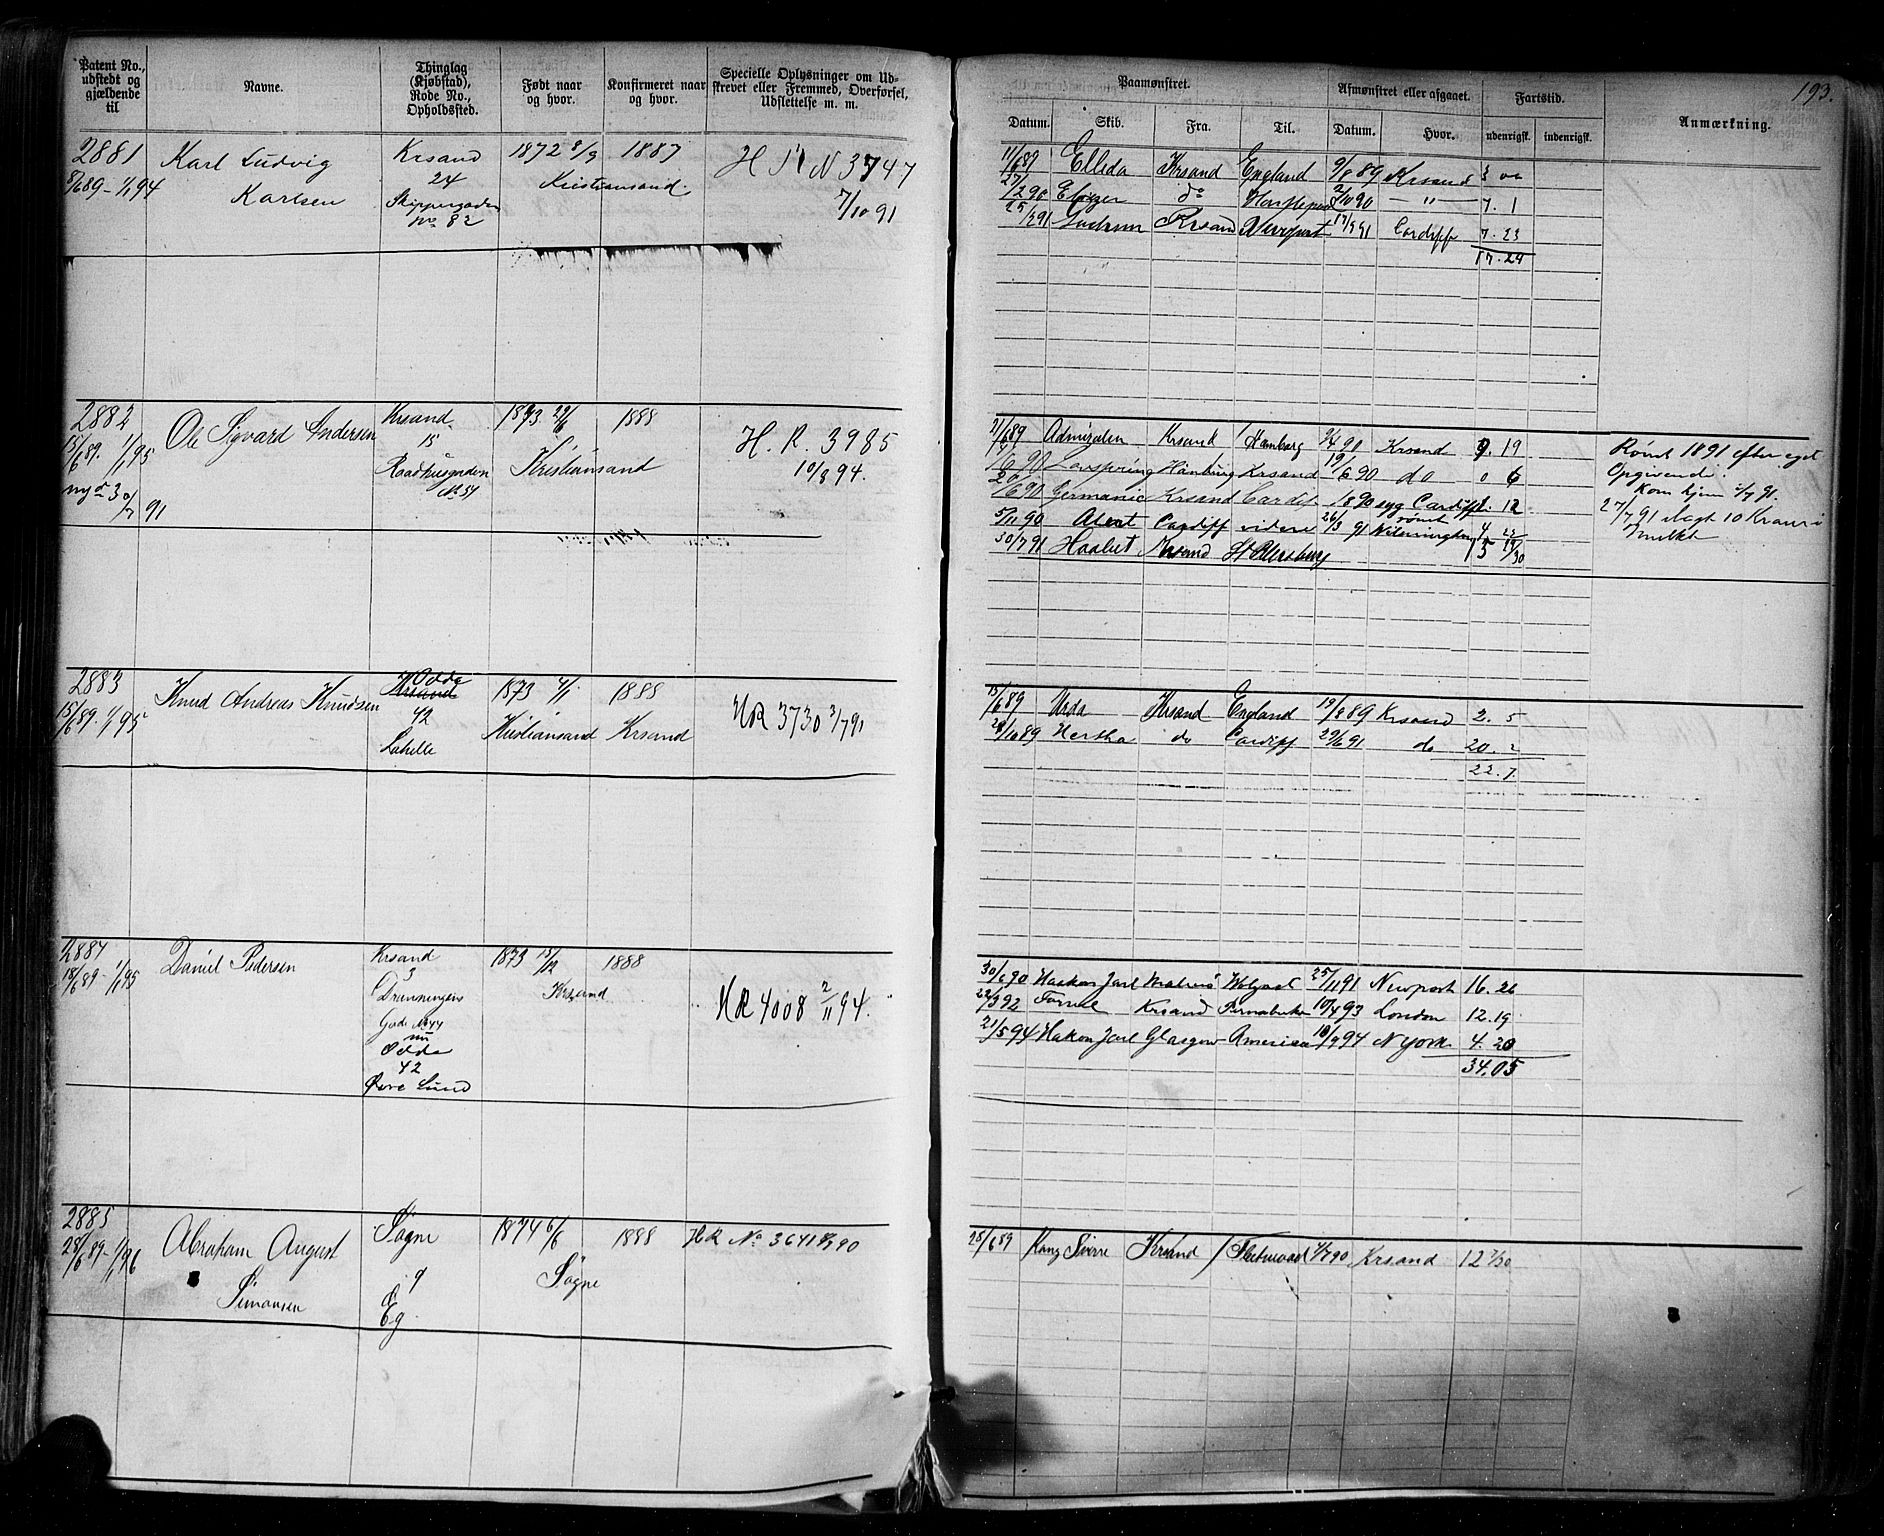 Patent No., udstedt og gjældende til
Navne.
Thinglag (Kjøbstad), Rode No., Opholdssted.
Født naar og hvor.
Konfirmeret naar og hvor.
Specielle Oplysninger om Udskrevet eller Fremmed, Overførsel, Udslettelse m. m.
Paamønstret.
Afmønstret eller afgaaet.
Fartstid.
Anmærkning.
193.
Datum.
Skib.
Fra.
Til.
Datum.
Hvor.
udenrigsk.
indenrigsk.
2881
8/6 89 - 1/1 94
Karl Ludvig
Karlsen
Krsand
24
Skippergaden
No 82
1872 8/9 1887
Kristiansand.
H R N 3747
7/10 91
11/6 89 Elleda Krsand England 9/8 89 Krsand 3 00
27/2 90 do 2/10 90 — " — 7. 1
25/2 91 Krsand Newport 17/9 91 Cardiff 7. 23
17. 24
2882
15/6 89. 1/1 95
Ole Sigvard Andersen
Krsand
15
Raadhusgaden
No 54
1873 29/6 1888
Kristiansand
H. R. 3985
10/8 94.
21/6 89 Admiralen Krsand Hamborg 2/4 90 Krsand 9. 19
Hamburg Krsand 19/6 90 do 0 6
20/6 90 Germanic Krsand Cardiff syg Cardiff 1. 12
5/11 90 Abert Cardiff videre 26/3 91 rømt
30/7 91 Haabet Krsand St Petersberg
Rømt 1891 efter eget
Opgivende.
Kom hjem 2/7 91.
27/7 91 ilagt 10 Kroner i
mulkt
2883
15/6 89. 1/1 95
Knud Andreas Knudsen
Odde
Krsand
42
Lahelle
1873 4/1 1888
Kristiansand Krsand
HR 3730 3/7 91
15/6 89 Urda Krsand England 19/8 89 Krsand 2. 5
28/10 89 Hertha do Cardiff 29/6 91 do 20. 2
22. 7.
2884
18/6 89 - 1/1 95
Daniel Pedersen
Krsand
3
Dronningens
Gade No 44
nu
Odde
42
Øvre Lund
1873 15/12 1888
Krsand
HR 4008 2/11 94.
30/6 90 Haakon Jarl Wolgast 25/11 91 Newport 16. 26
22/3 92 Krsand 10/4 93 London 12. 19
21/5 94 Hakon Jarl Glasgow America 10/9 94 N York 4. 20
34. 05
2885
28/6 89 - 1/1 96
Abraham August
Simonsen
Søgne
9
Eg.
1874 6/6 1888
Søgne
HR No 3641
25/6 89 Kong Sverre Krsand 4/7 90 Krsand 12 7/30